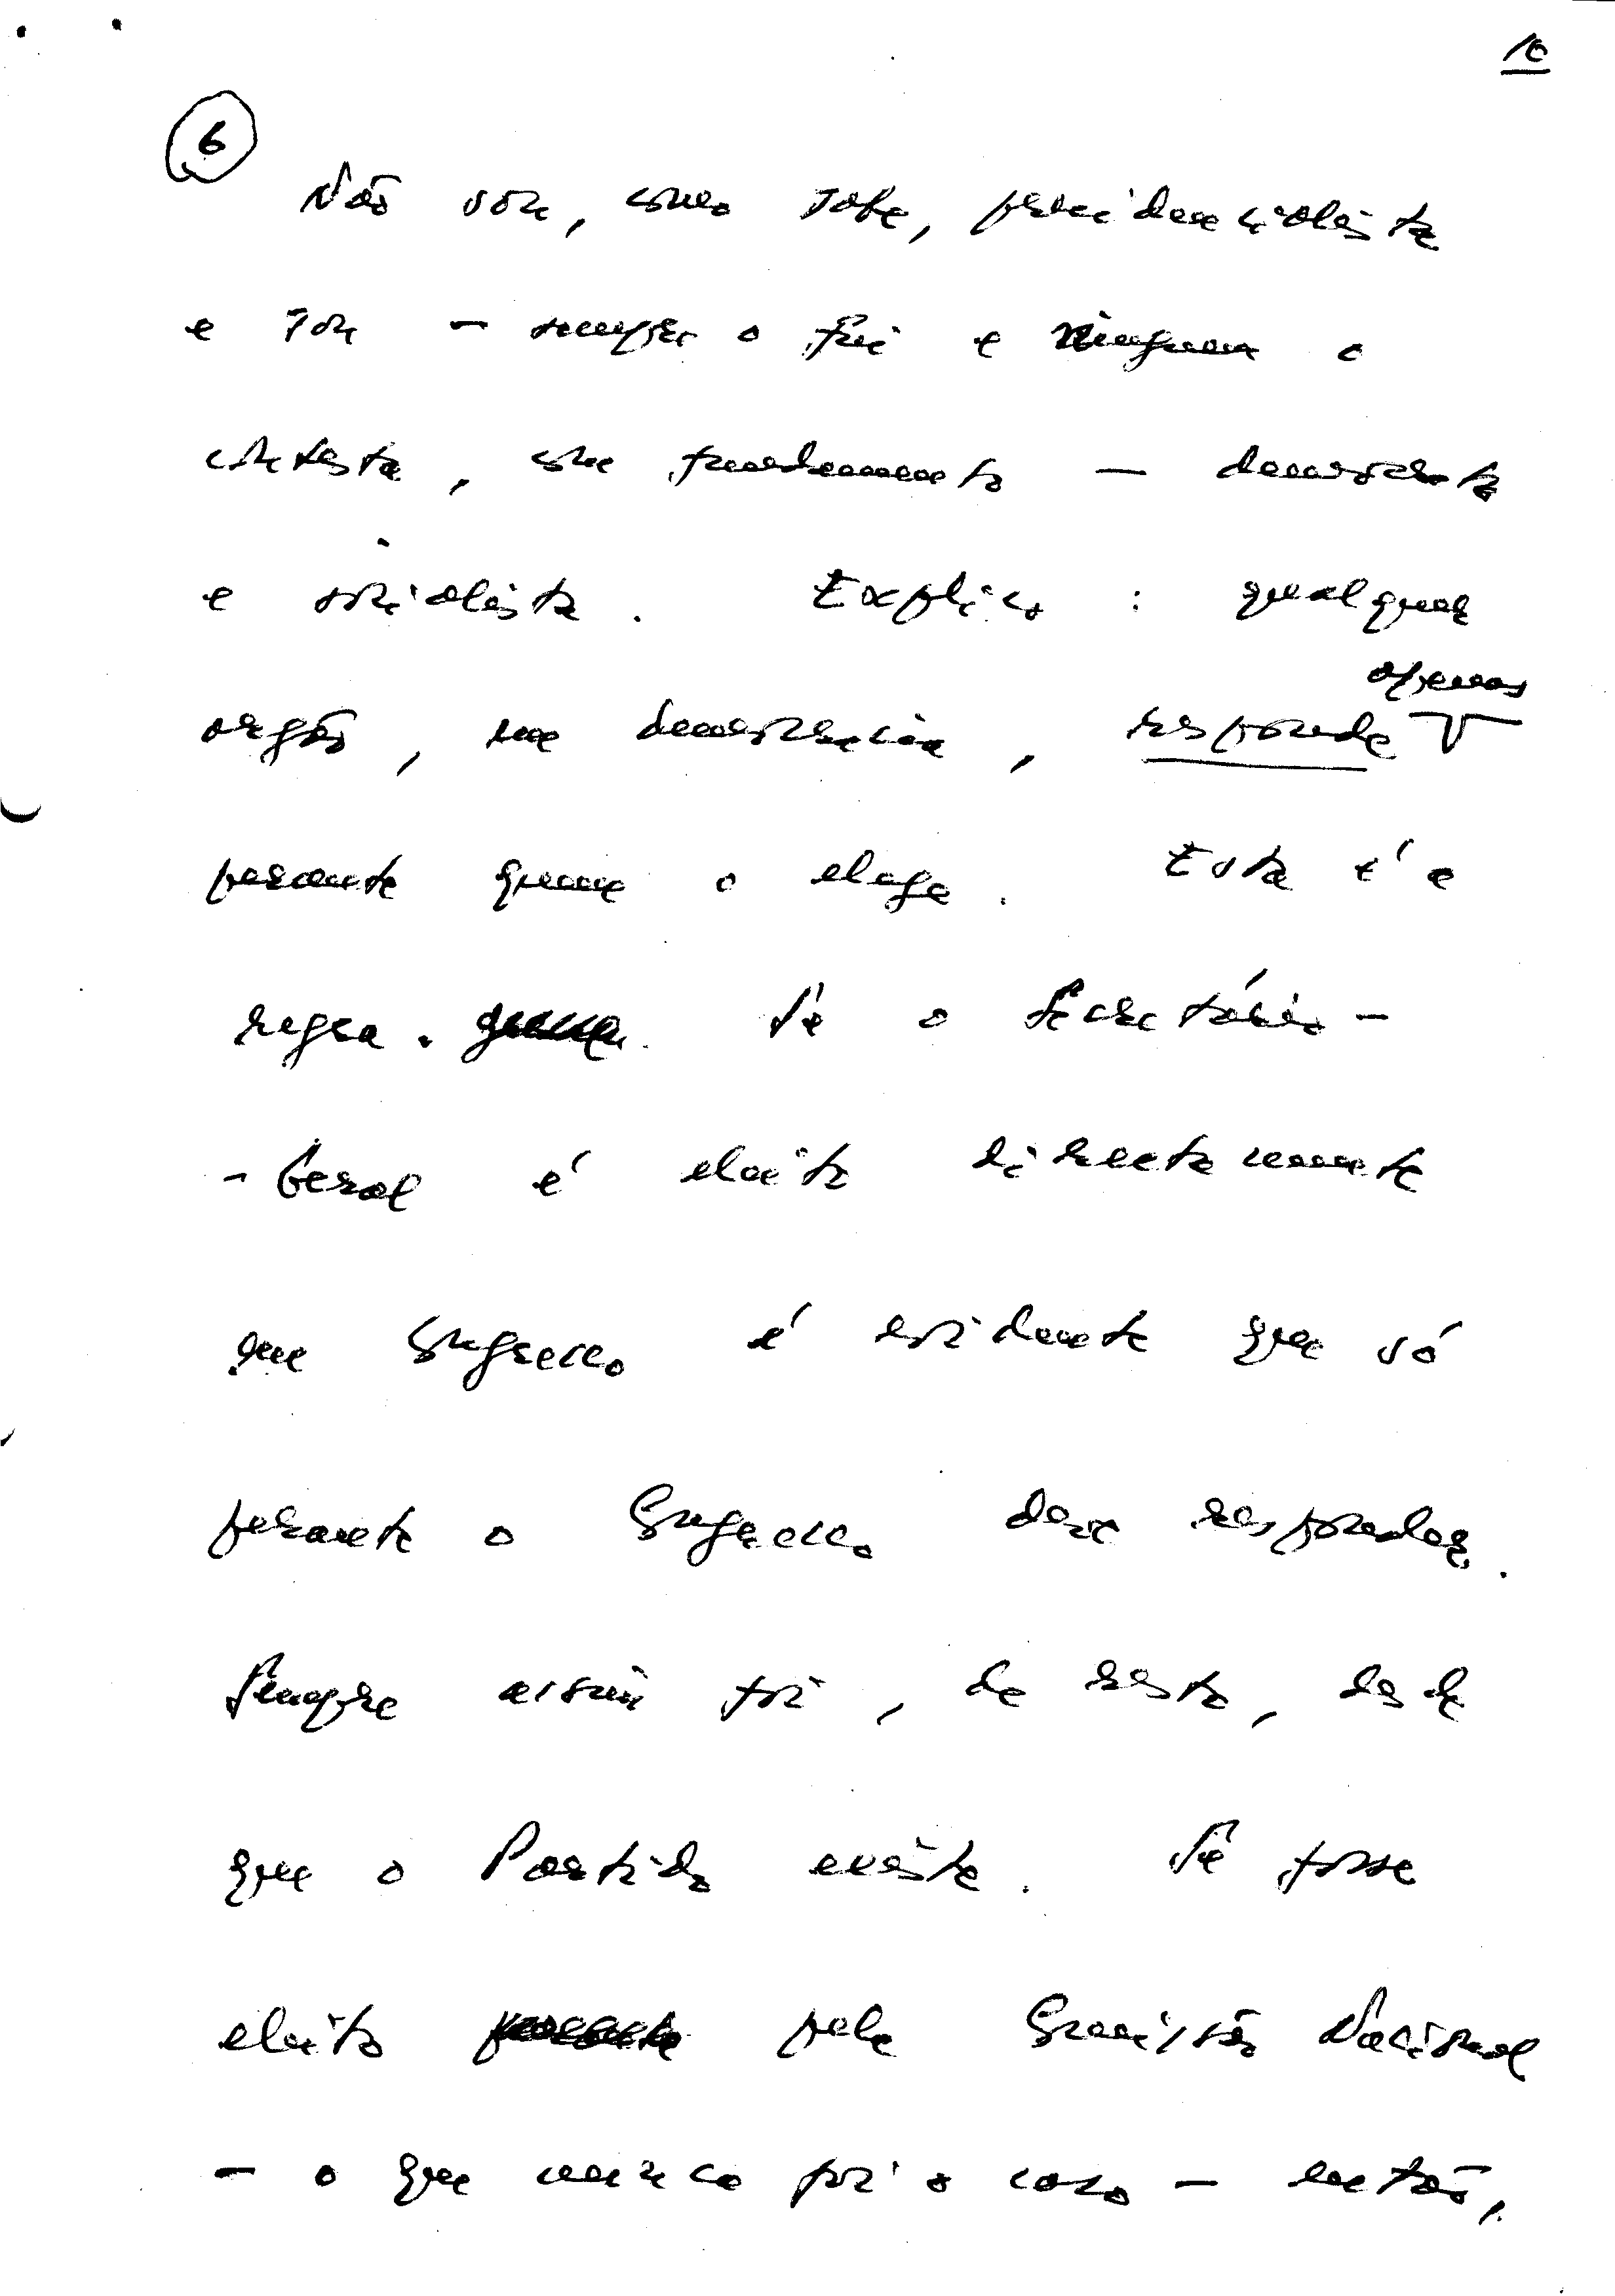 10
6
Não sou, como sabe, presidencialista
e sou — sempre o fui e ninguém o
contesta, com fundamento — democrata
e socialista. Explico: qualquer
apenas
orgão, em democracia, responde
perante quem o elege. Esta é a
regra. Se o Secretário-
-Geral é eleito directamente
em Congresso é evidente que só
perante o Congresso deve responder.
Sempre assim foi, de resto, desde
que o Partido existe. Se fosse
eleito pela Comissão Nacional
— o que nunca foi o caso — então,